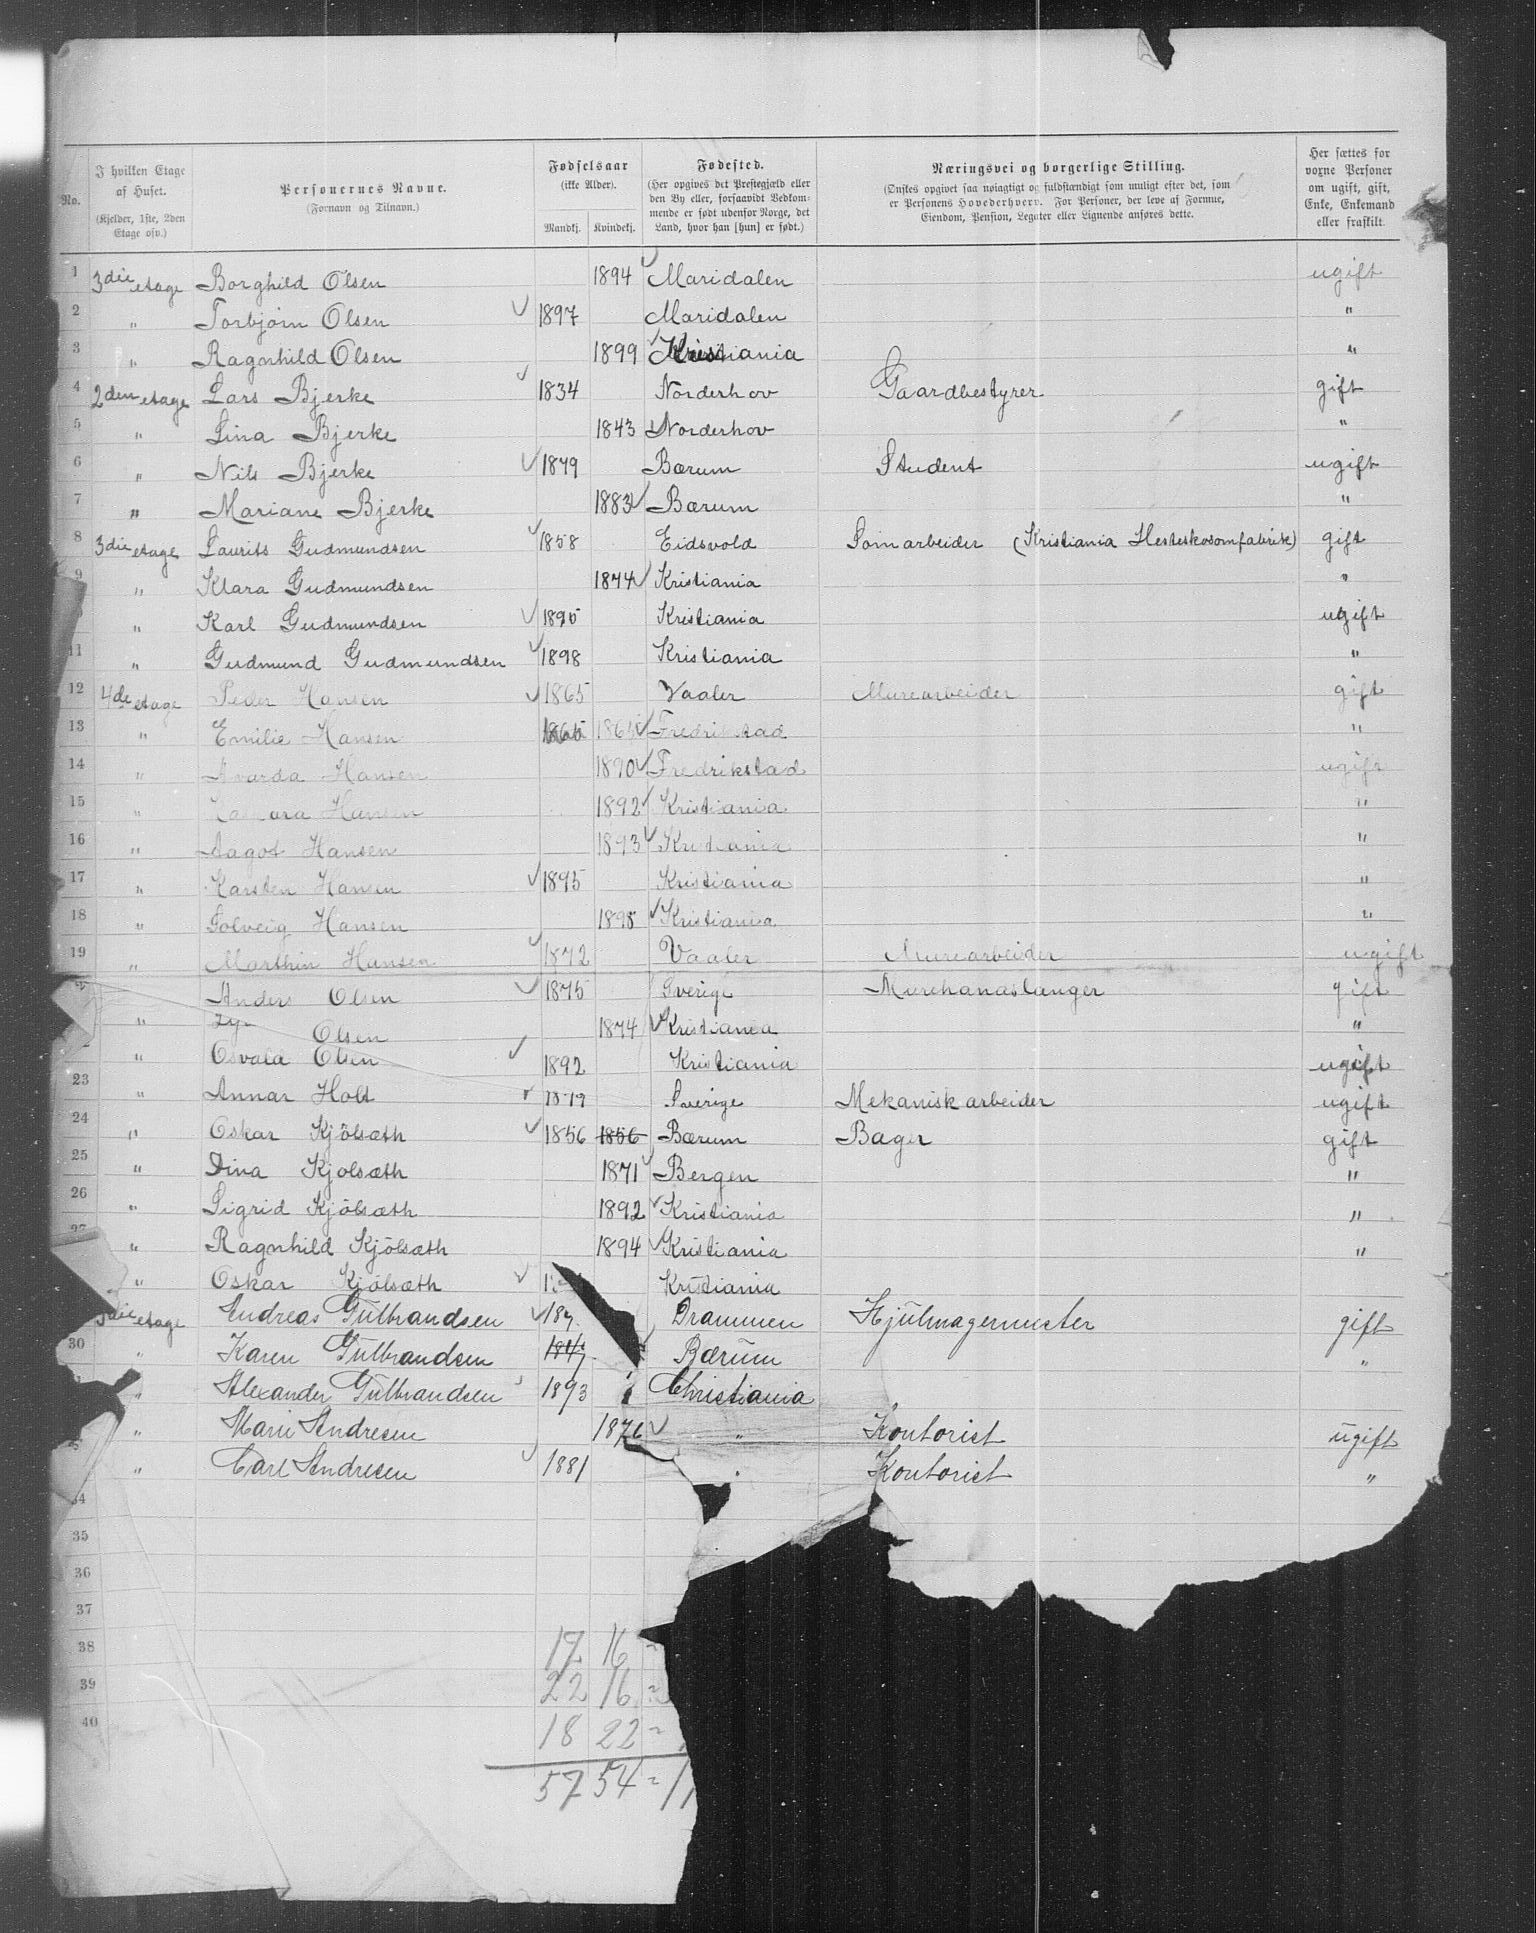 No.
I hvilken Etage af Huset.
(Kjelder, 1ste, 2den Etage osv.)
Personernes Navne.
(Fornavn og Tilnavn.)
Fødselsaar
(ikke Alder).
Mandkj. Kvindekj.
Fødested.
(Her opgives det Prestegjæld eller den By eller, forsaavidt Vedkommende er født udenfor Norge, det Land, hvor han [hun] er født.)
Næringsvei og borgerlige Stilling.
(Ønskes opgivet saa nøiagtigt og fuldstændigt som muligt efter det, som er Personens Hovederhverv. For Personer, der leve af Formue, Eiendom, Pension, Legater eller Lignende anføres dette.
Her sættes for voxne Personer om ugift, gift, Enke, Enkemand eller fraskilt.
1 3die etage Borghild Olsen 1894 Maridalen ugift
2 " Torbjørn Olsen 1897 Maridalen "
3 " Ragnhild Olsen 1899 Kristiania "
4 2den etage Lars Bjerke 1834 Norderhov Gaardbestyrer gift
5 " Lina Bjerke 1843 Norderhov "
6 " Nils Bjerke 1879 Bærum Student ugift
7 " Mariane Bjerke 1883 Bærum "
8 3die etage Laurits Gudmundsen 1858 Eidsvold Somarbeider (Kristiania Hesteskosomfabrik) gift
9 " Klara Gudmundsen 1874 Kristiania "
" Karl Gudmundsen 1895 Kristiania ugift
11 " Gudmund Gudmundsen 1898 Kristiania "
12 4de etage Peder Hansen 1865 Vaaler Murearbeider gift
13 " Emilie Hansen 1865 Fredrikstad "
14 " Hansen 1890 Fredrikstad ugift
15 " Hansen 1892 Kristiania "
16 " Aagot Hansen 1893 Kristiania "
17 " Karsten Hansen 1895 Kristiania "
18 " Solveig Hansen 1898 Kristiania "
19 " Marthin Hansen 1872 Vaaler Murearbeider ugift
Anders Olsen 1875 Sverige Murehandlanger gift
" Olsen 1874 Kristiania "
" Osvald Olsen 1892 Kristiania ugift
23 " Annar Holt 1879 Sverige Mekanisk arbeider ugift
24 " Oskar Kjölsæth 1856 1856 Bærum Bager gift
25 " Dina Kjolsæth 1871 Bergen "
26 " Sigrid Kjölsæth 1892 Kristiania "
27 " Ragnhild Kjölsæth 1894 Kristiania "
" Oskar Kjölsæth Kristiania
3die etage Andreas Gulbrandsen 184 Drammen Hjulmagermester gift
30 " Karen Gulbrandsen 184 Bærum "
" Alexander Gulbrandsen 1893 Christiania
" Marie Andresen 1876 " Kontorist ugift
" Carl Andresen 1881 " Kontorist "
34
35
36
37
38 17 16 =
39 22 16 =
40 18 22 =
57 54 = 11